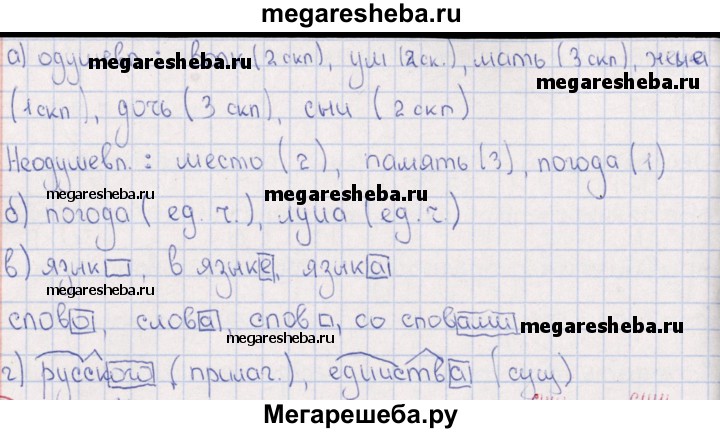 megaresheba.ru
а) одушевл.: волк (2 скл), ум (2 ск.), мать (3 скл), жена
megaresheba.ru
megaresheba.ru
(1 скл), дочь (3 скл), сын (2 скл)
Неодушевл.: место (2), память (3), погода (1)
megaresheba.ru megaresheba.ru
б) погода (ед. ч.), луна (ед. ч.)
в) язык, в языке, языка
megaresheba.ru
слово, слова, слов, со словами
megaresheba.ru
megaresheba.ru
г) русского (прилаг.), единства (сущ)
Мегарешеба.ру